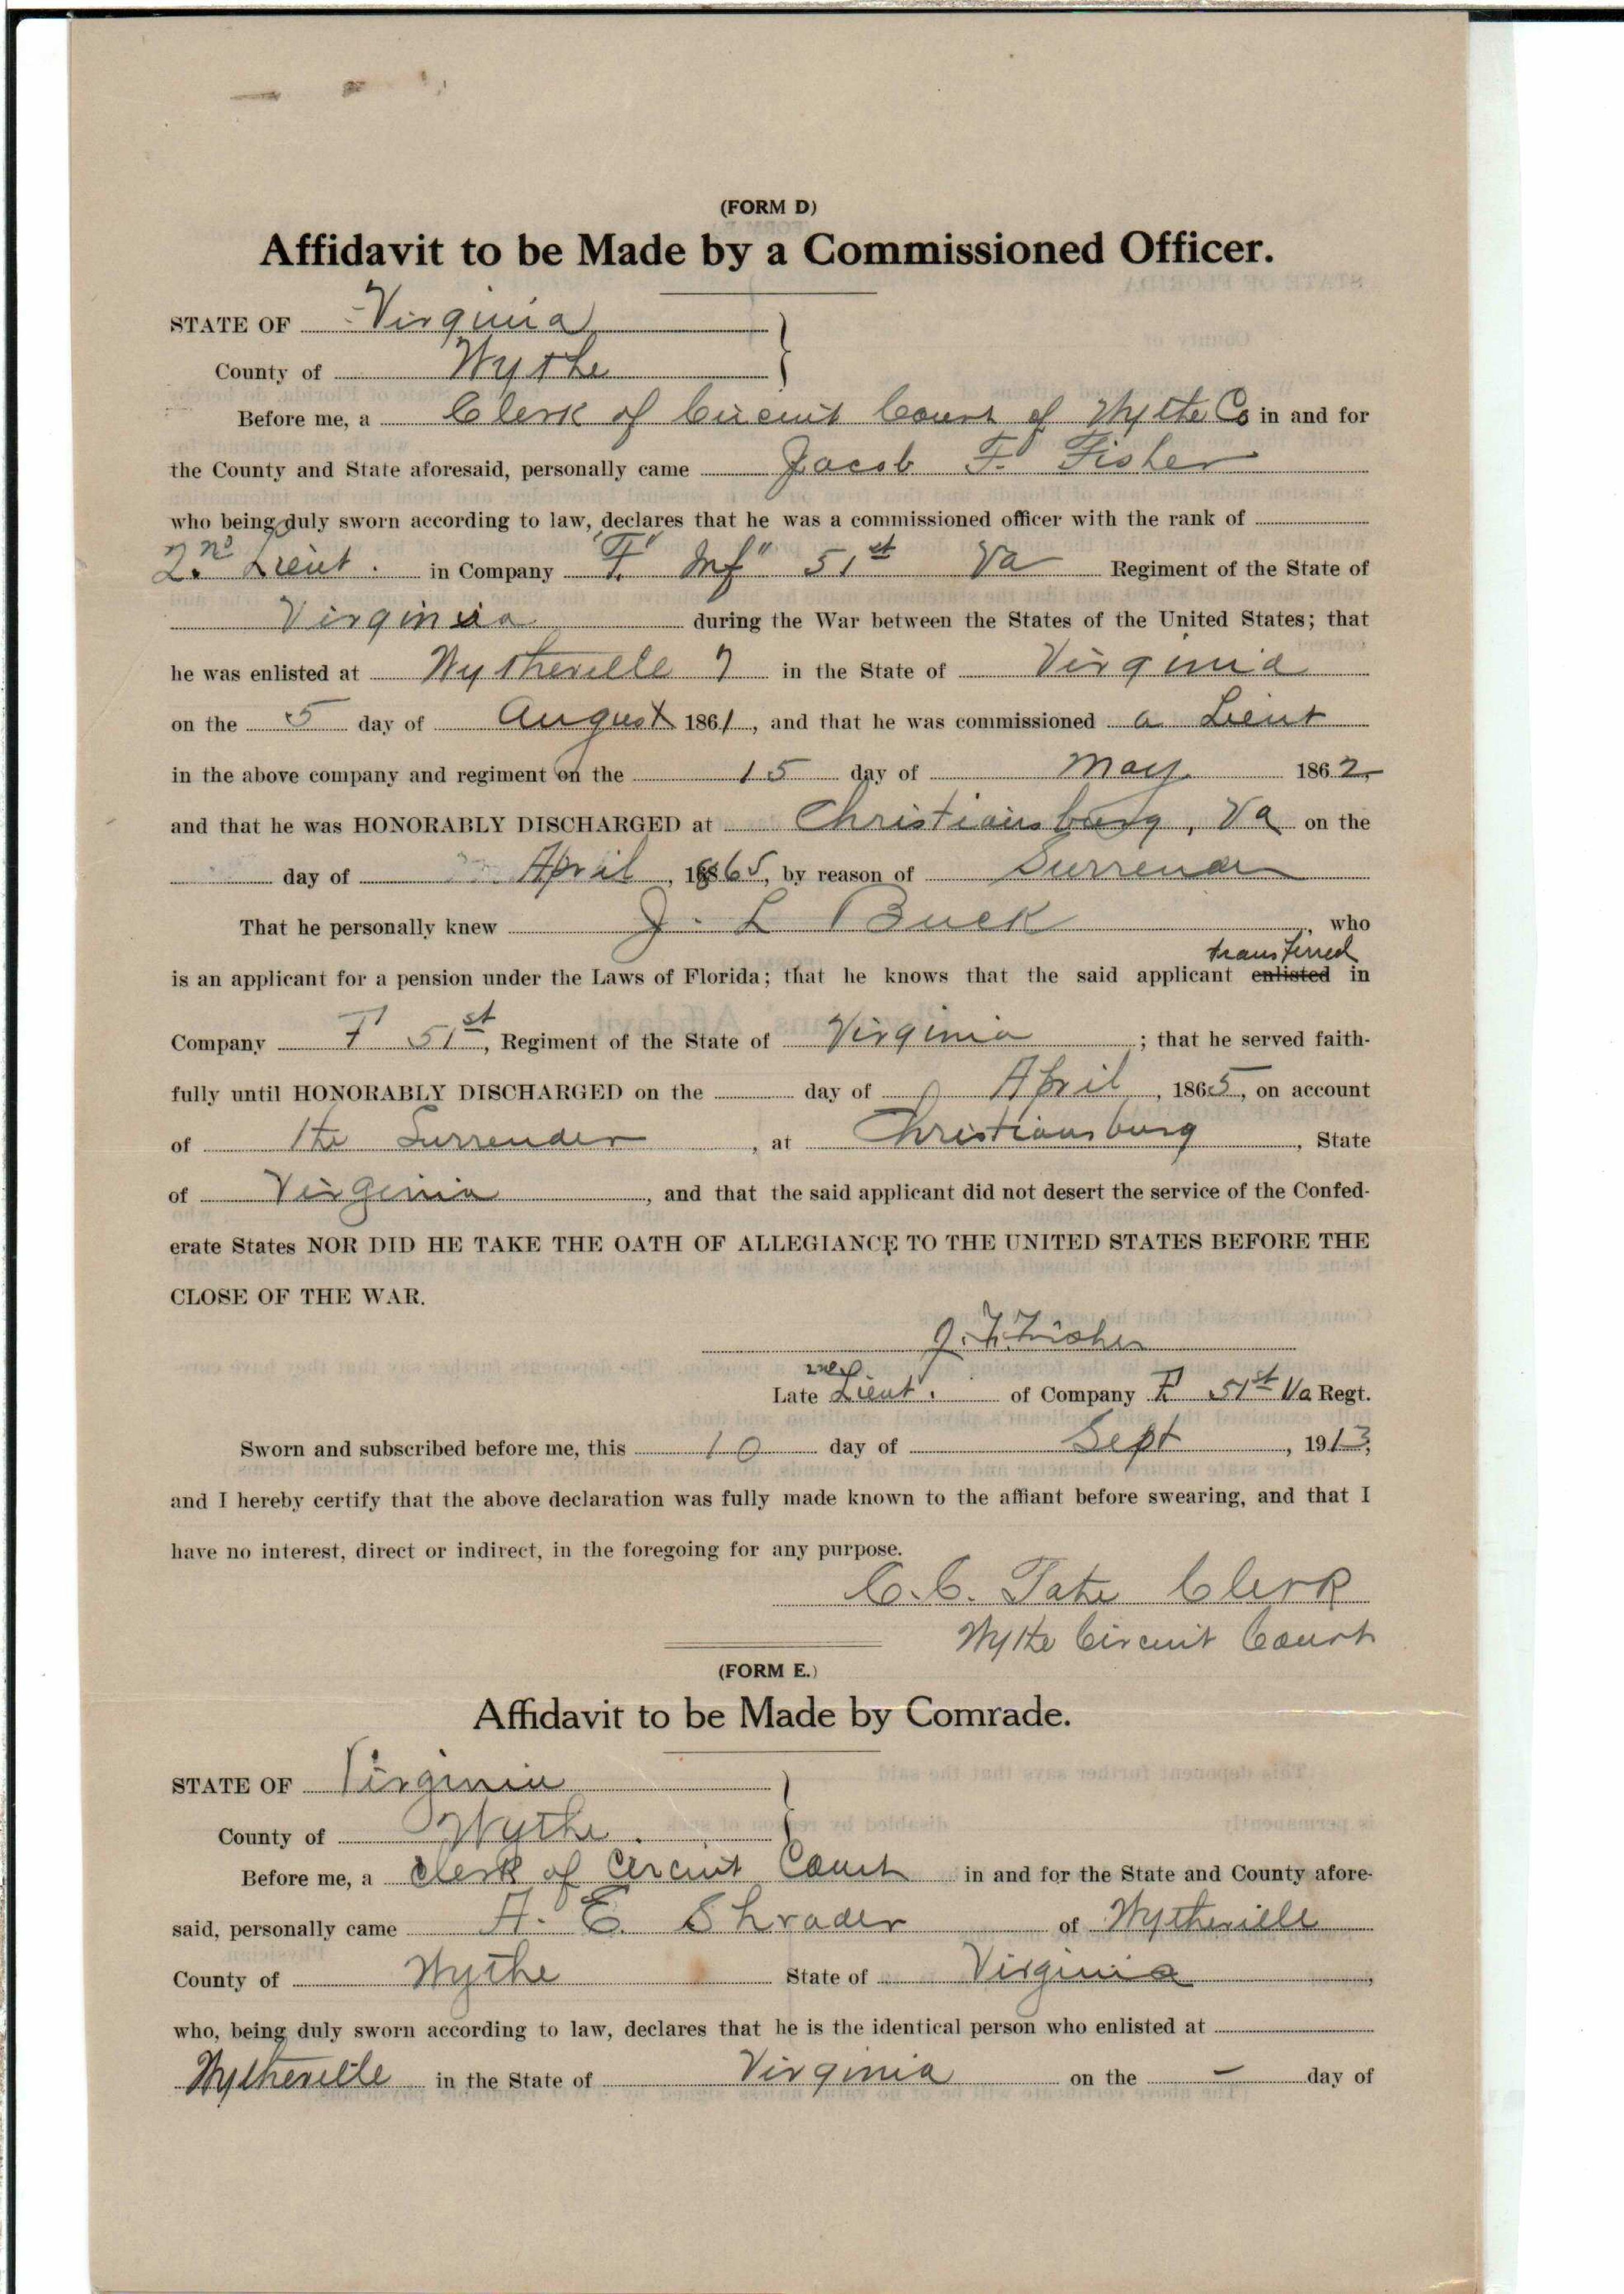 (FORM D)
Affidavit to be Made by a Commissioned Officer.
STATE OF Virginia
County of Wythe
Before me, a Clerk of Circuit Court of Wythe Co in and for
the County and State aforesaid, personally came Jacob F. Fisher
who being duly sworn according to law, declares that he was a commissioned officer with the rank of
2nd Lieut. in Company "F" Inf" 51st Va Regiment of the State of
Virginia during the War between the States of the United States; that
he was enlisted at Wytheville in the State of Virginia
on the 5 day of August 1861, and that he was commissioned a Lieut
in the above company and regiment on the 15 day of May 1862
and that he was HONORABLY DISCHARGED at Christiansburg, Va on the
day of April, 1865, by reason of Surrender
That he personally knew J. L Buck, who
transferred
is an applicant for a pension under the Laws of Florida; that he knows that the said applicant enlisted in
Company F 51st, Regiment of the State of Virginia; that he served faith-
fully until HONORABLY DISCHARGED on the day of April, 1865, on account
of the Surrender, at Christiansburg, State
of Virginia, and that the said applicant did not desert the service of the Confed-
erate States NOR DID HE TAKE THE OATH OF ALLEGIANCE TO THE UNITED STATES BEFORE THE
CLOSE OF THE WAR.
J. F. Fisher
2nd
Late Lieut. of Company F 51st Va Regt.
Sworn and subscribed before me, this 10 day of Sept, 1913,
and I hereby certify that the above declaration was fully made known to the affiant before swearing, and that I
have no interest, direct or indirect, in the foregoing for any purpose.
C. C. Tate Clerk
Wythe Circuit Court
(FORM E.)
Affidavit to be Made by Comrade.
STATE OF Virginia
County of Wythe.
Before me, a Clerk of Circuit Court in and for the State and County afore-
said, personally came H. E. Shrader of Wytheville
County of Wythe State of Virginia,
who, being duly sworn according to law, declares that he is the identical person who enlisted at
Wytheville in the State of Virginia on the – day of